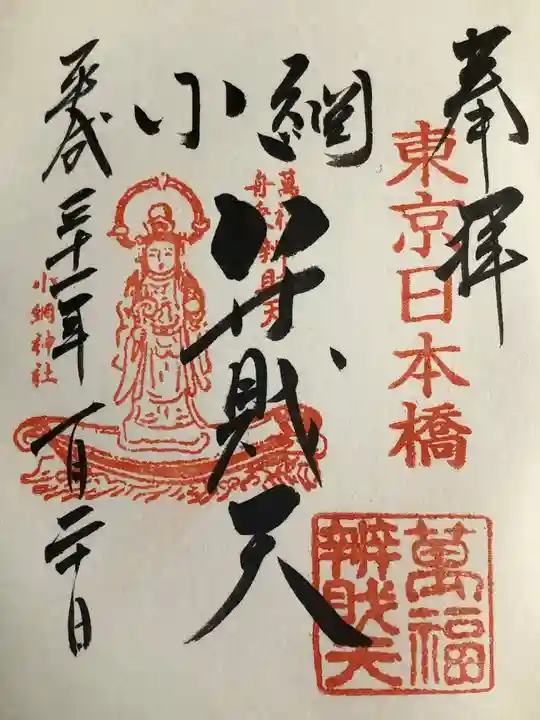 奉拝
東京日本橋
小網
弁財天
萬福
舟乗弁財天
平成三十一年一月二十日
小網神社
萬福
辨財天